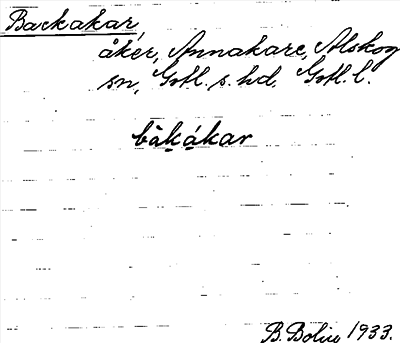 Backakar,
åker, Annakare, Alskog
sn, Gotl. s. hd. Gotl. l.
bàkákar
B. Bolin 1933.